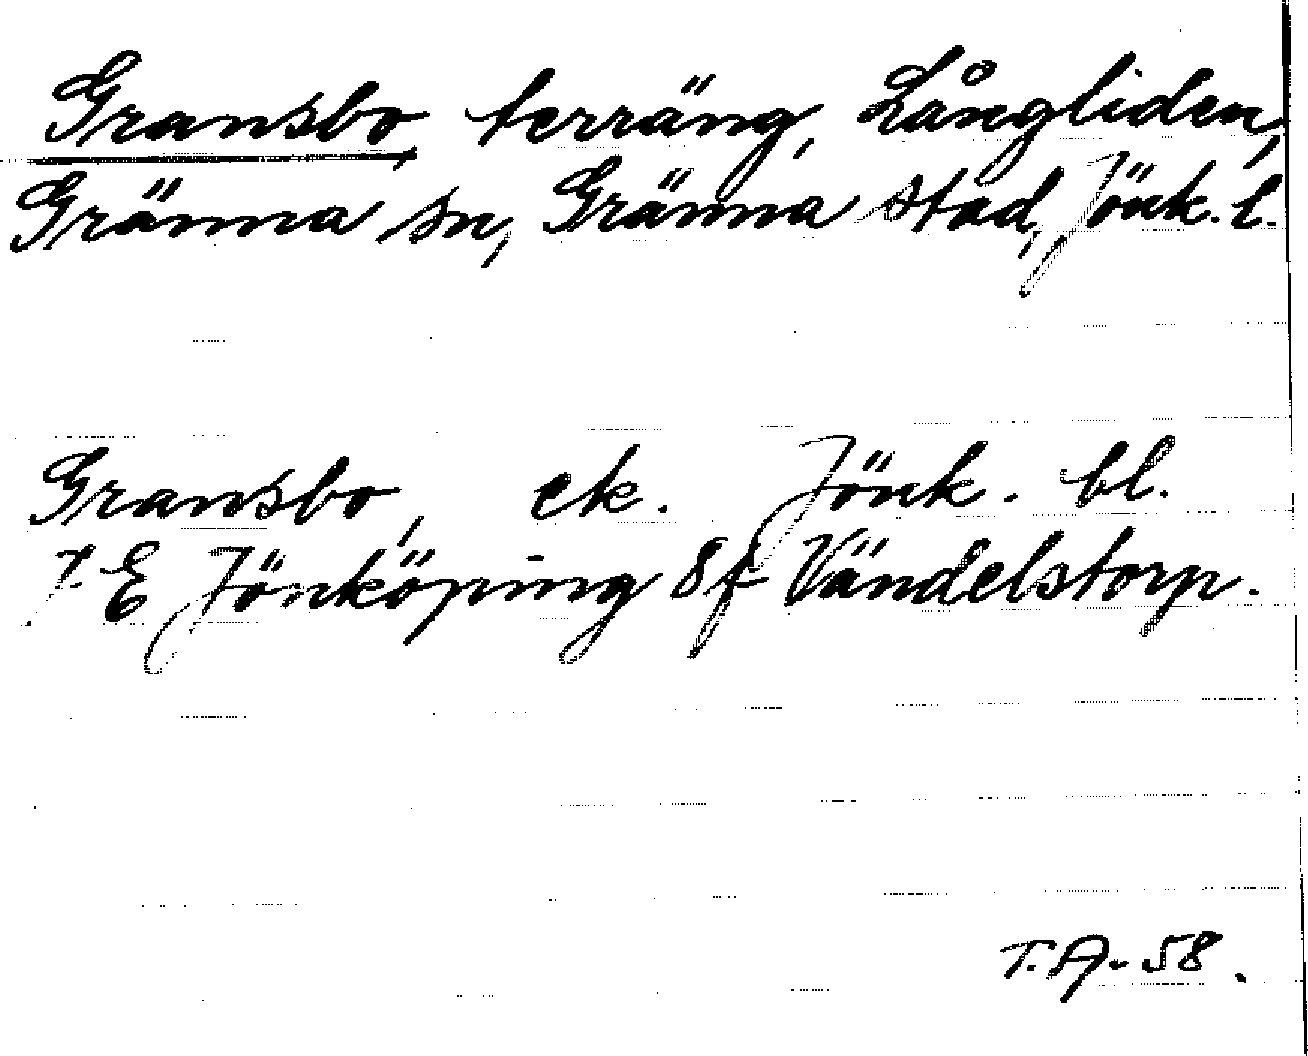 Gransbo, terräng, Långliden,
Gränna sn, Gränna stad, Jönk. l.
Gransbo, ek. Jönk. bl.
7. E Jönköping 8f Vändelstorp.
T.A. 58.